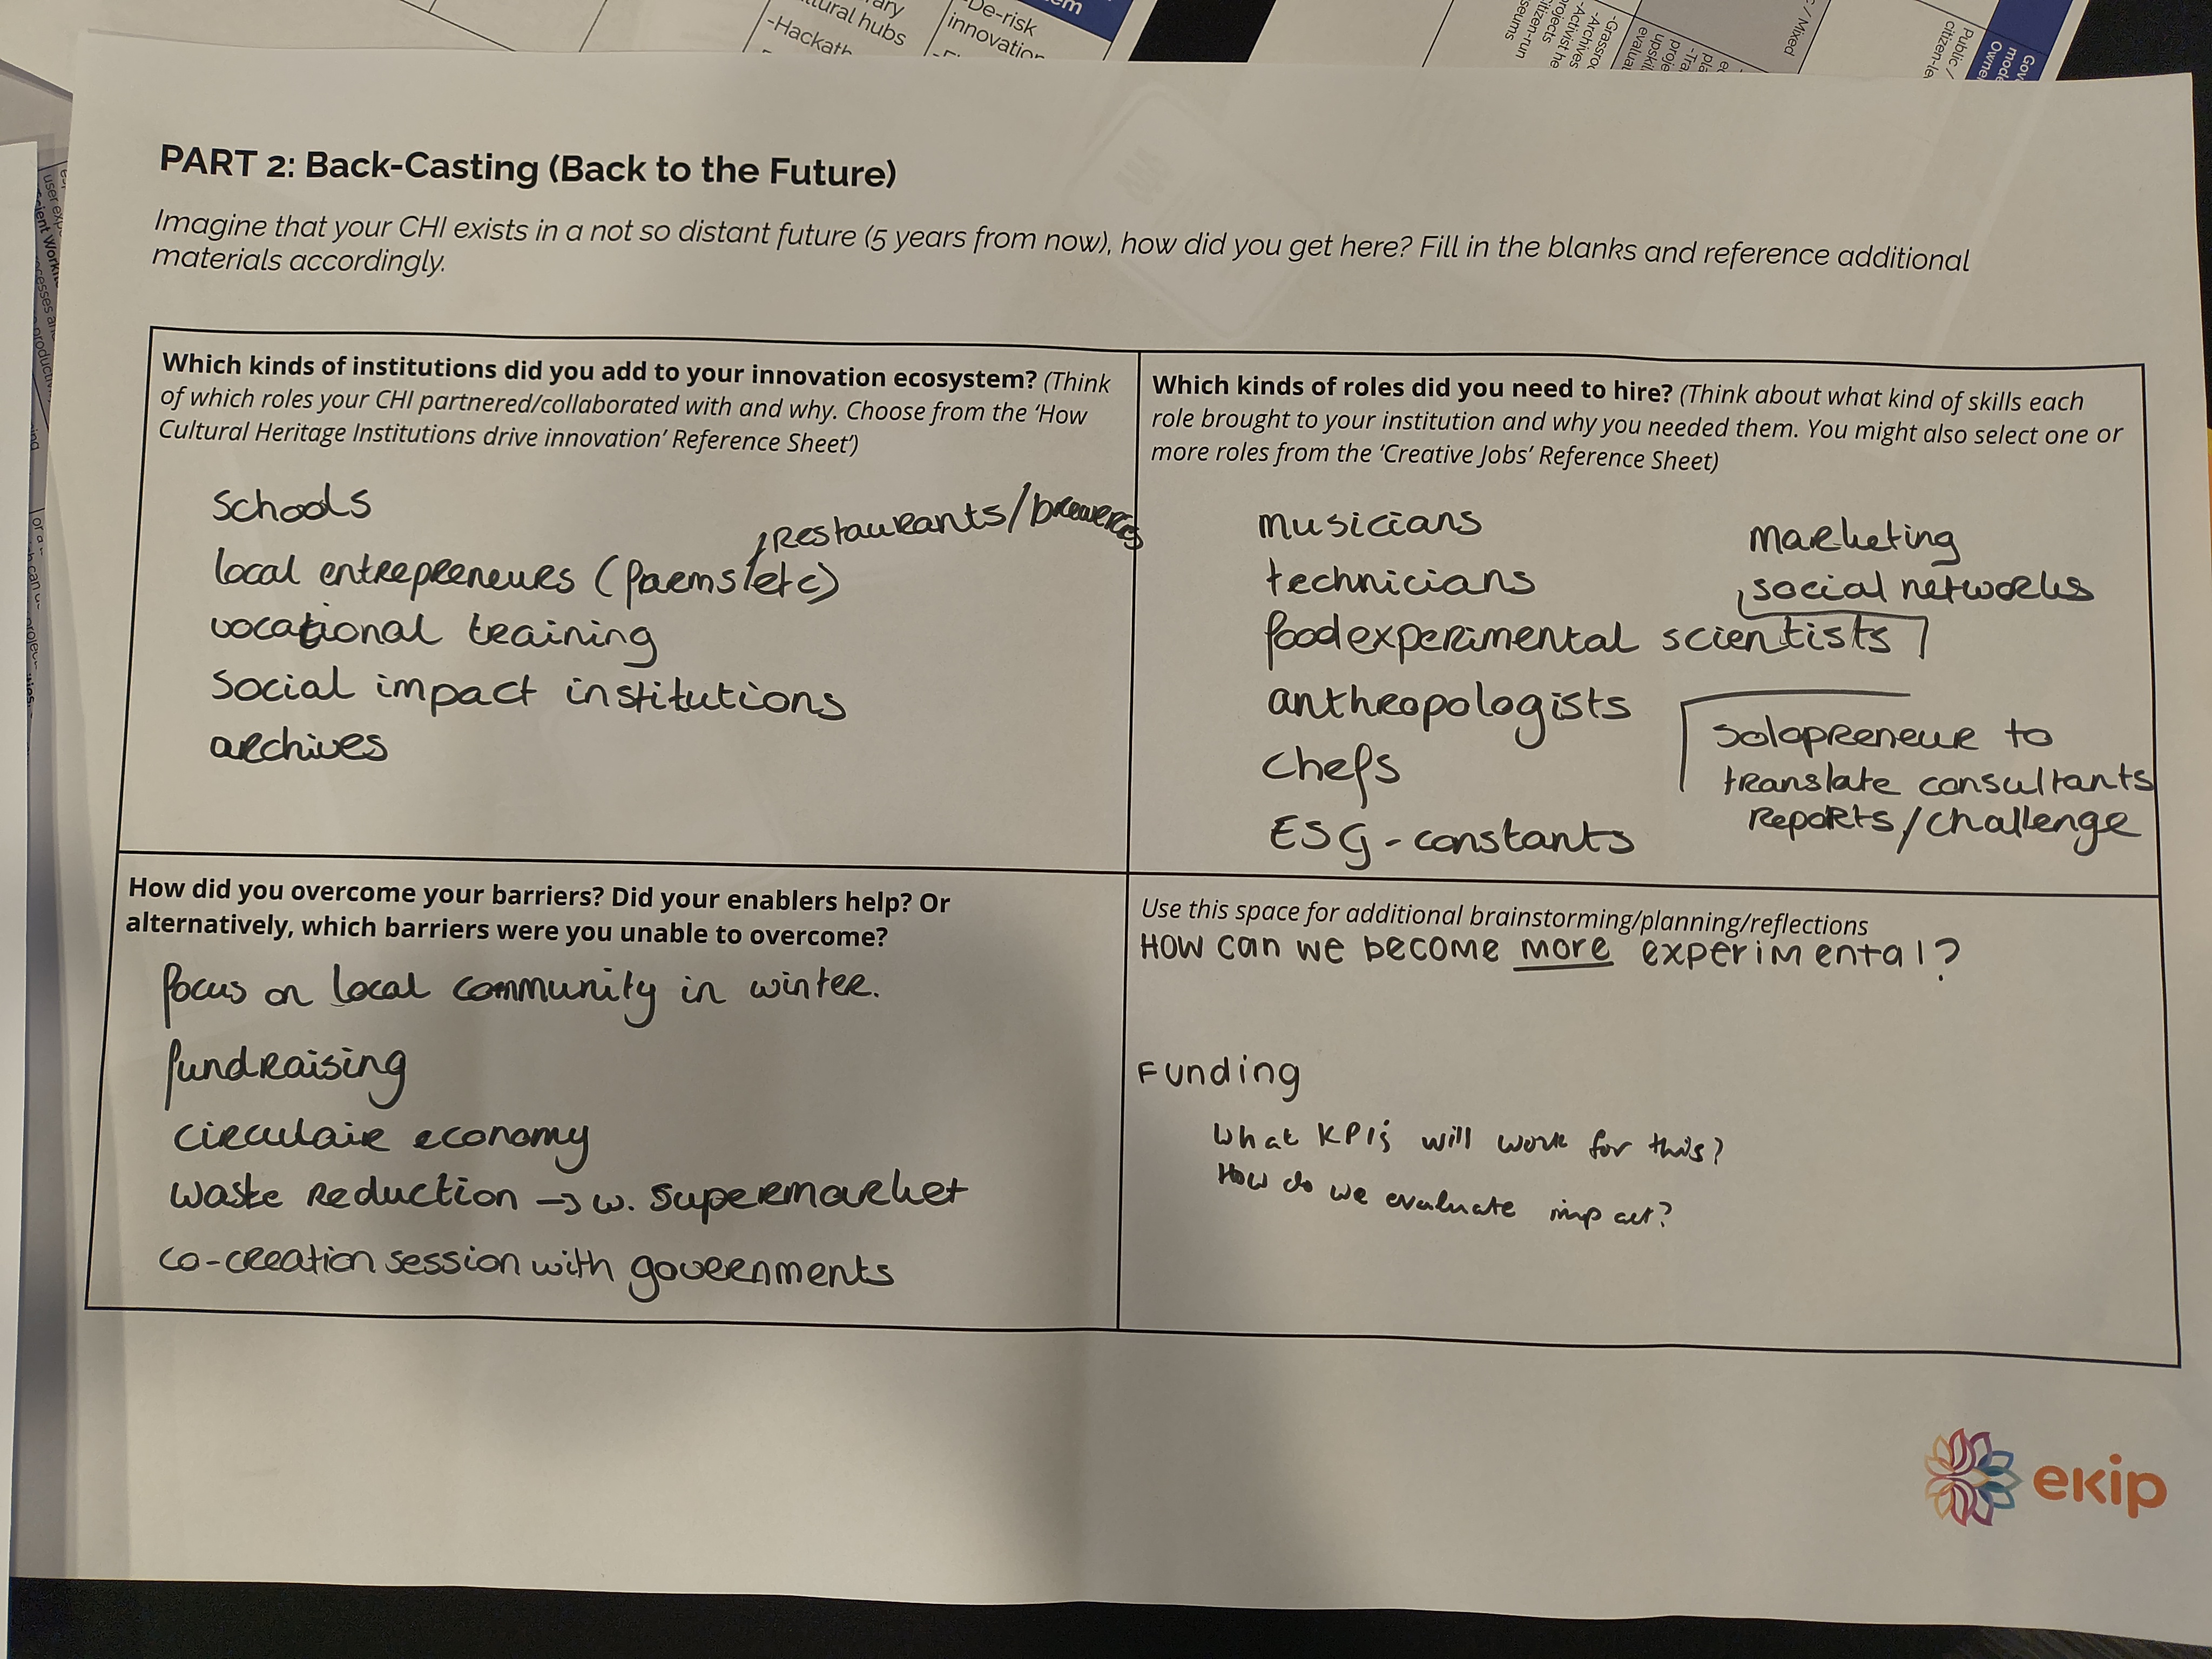 ural hubs
-Hackath
De-risk
innovation
/ Mixed
Public /
citizen-le
PART 2: Back-Casting (Back to the Future)
Imagine that your CHI exists in a not so distant future (5 years from now), how did you get here? Fill in the blanks and reference additional
materials accordingly.
Which kinds of institutions did you add to your innovation ecosystem? (Think
of which roles your CHI partnered/collaborated with and why. Choose from the ‘How
Cultural Heritage Institutions drive innovation’ Reference Sheet’)
schools
restaurants/breweries
local entrepreneurs (farms/etc)
vocational training
social impact institutions
archives
Which kinds of roles did you need to hire? (Think about what kind of skills each
role brought to your institution and why you needed them. You might also select one or
more roles from the ‘Creative Jobs’ Reference Sheet)
musicians
technicians
food experimental scientists
anthropologists
chefs
ESG-constants
marketing
social networks
solopreneur to
translate consultants
reports/challenge
How did you overcome your barriers? Did your enablers help? Or
alternatively, which barriers were you unable to overcome?
focus on local community in winter.
fundraising
circulair economy
waste reduction → w. supermarket
co-creation session with governments
Use this space for additional brainstorming/planning/reflections
How can we become more experimental?
Funding
What KPI's will work for this?
How do we evaluate impact?
ekip